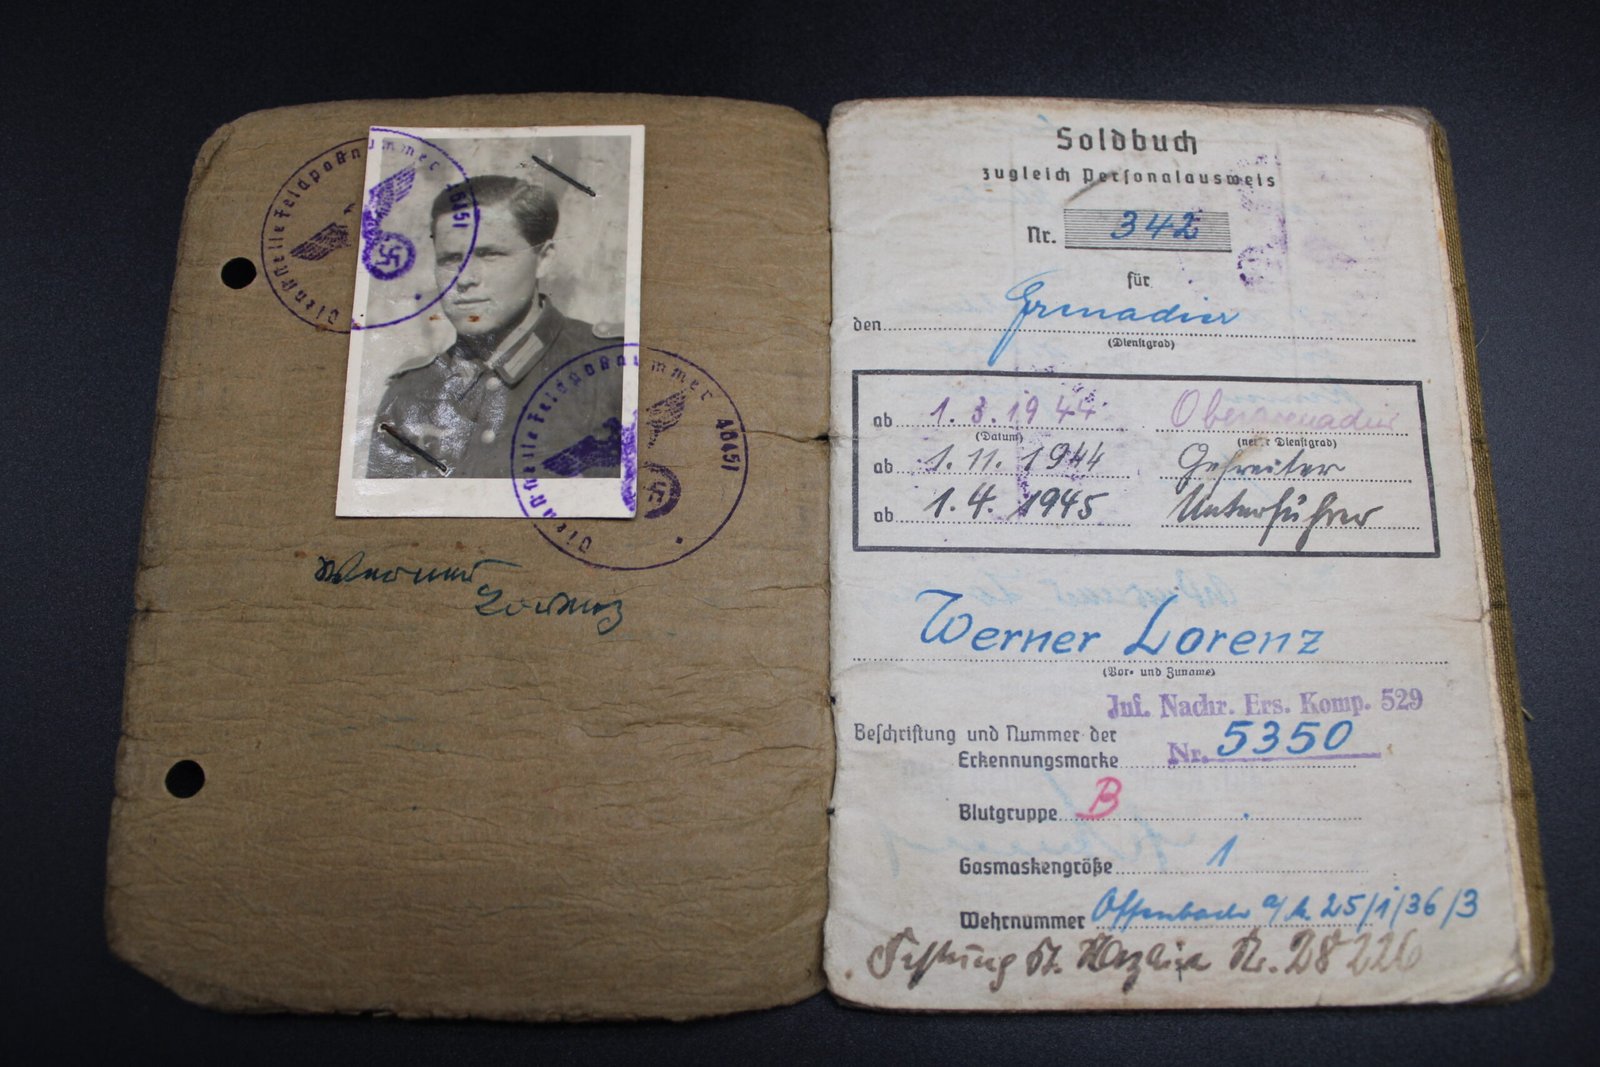 Dienststelle Feldpostnummer 46451
Dienststelle Feldpostnummer 46451
Werner
Lorenz
Soldbuch
zugleich Personalausweis
Nr. 342
für
den Grenadier
(Dienstgrad)
ab 1.3.1944 Obergrenadier
(Datum) (neuer Dienstgrad)
ab 1.11.1944 Gefreiter
ab 1.4.1945 Unterführer
Werner Lorenz
(Vor- und Zuname)
Inf. Nachr. Ers. Komp. 529
Beschriftung und Nummer der
Erkennungsmarke Nr. 5350
Blutgruppe B
Gasmaskengröße 1
Wehrnummer Offenbach a/M. 25/1/36/3
Festung St. Nazaire Nr. 28226